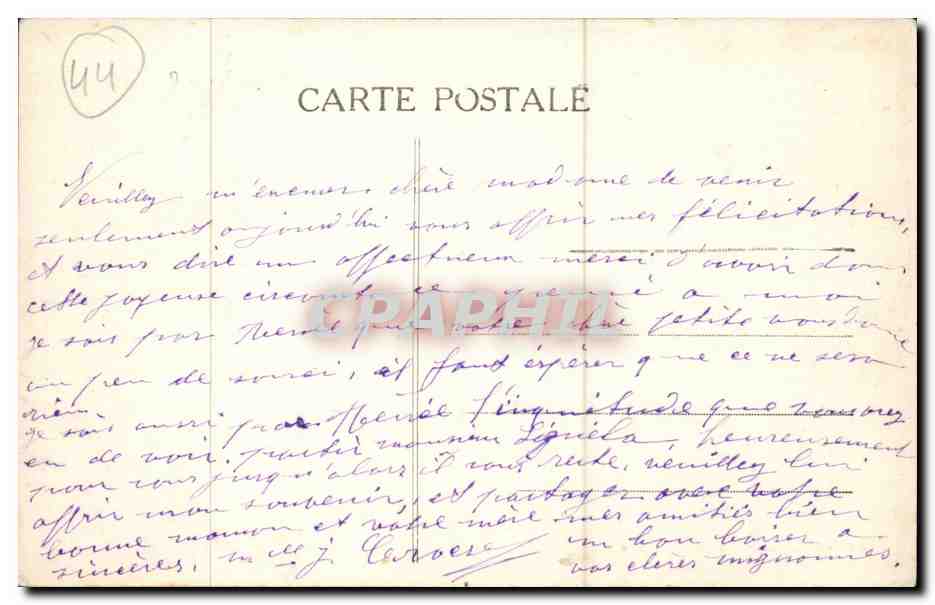 44
CARTE POSTALE
Veuillez m'excuser chère madame de venir
seulement aujourd'hui vous offrir mes félicitations,
et vous dire un affectueux merci d'avoir dans
cette joyeuse circonstance pensé a moi
je sais par que votre chère petite vous donne
un peu de souci, il faut espérer que ce ne sera
rien.
je sais aussi par l'inquiétude que vous avez
eu de voir partir monsieur heureusement
pour vous jusqu'alors il vous reste, veuillez lui
offrir mon souvenir, et partager avec votre
bonne maman et votre mère mes amitiés bien
sincères, un bon baiser a
Mlle J.
vos chères mignonnes.
CPAPHIL